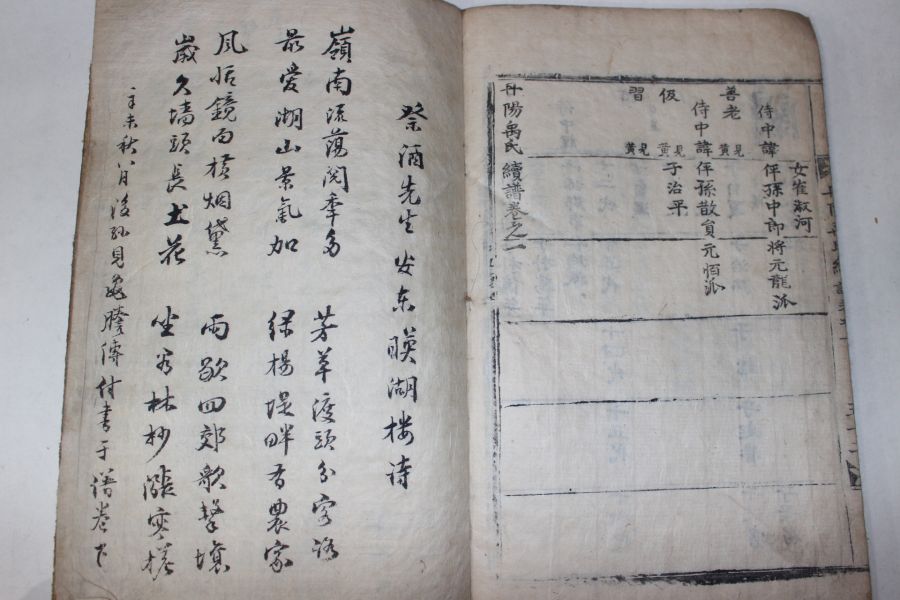 女崔淑河
侍中諱伻孫中郎將元龍派
善老 見黃
侍中諱伻孫散員元佰派
仮 見黃 子治平
習 見黃
丹陽禹氏續譜卷之二
祭酒先生安東暎湖樓詩
嶺南流蕩閱秊多 芳草渡頭分客路
最愛湖山景氣加 綠楊堤畔有農家
風恬鏡面橫烟黛 雨歇四郊歌擊壤
歲久墻頭長土花 坐看林杪漲寒槎
辛未秋八月後孫見龜謄傳付書于譜卷下